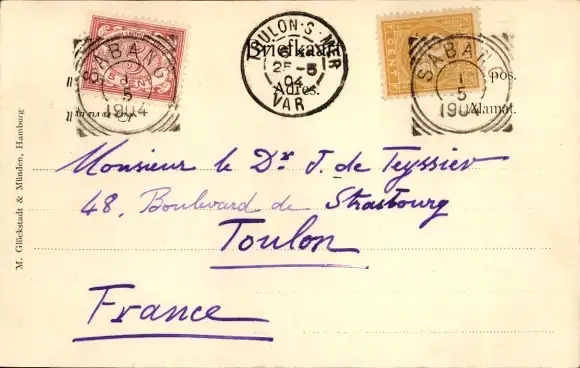 SABANG
1
5
1904
TOULON-S-MER
25-5
04
VAR
SABANG
1
5
1904
CENT
CENT
Briefkaart
Adres.
pos.
Alamat.
Monsieur le Dr J. de Teyssier
48, Boulevard de Strasbourg
Toulon
France
M. Glückstadt & Münden, Hamburg